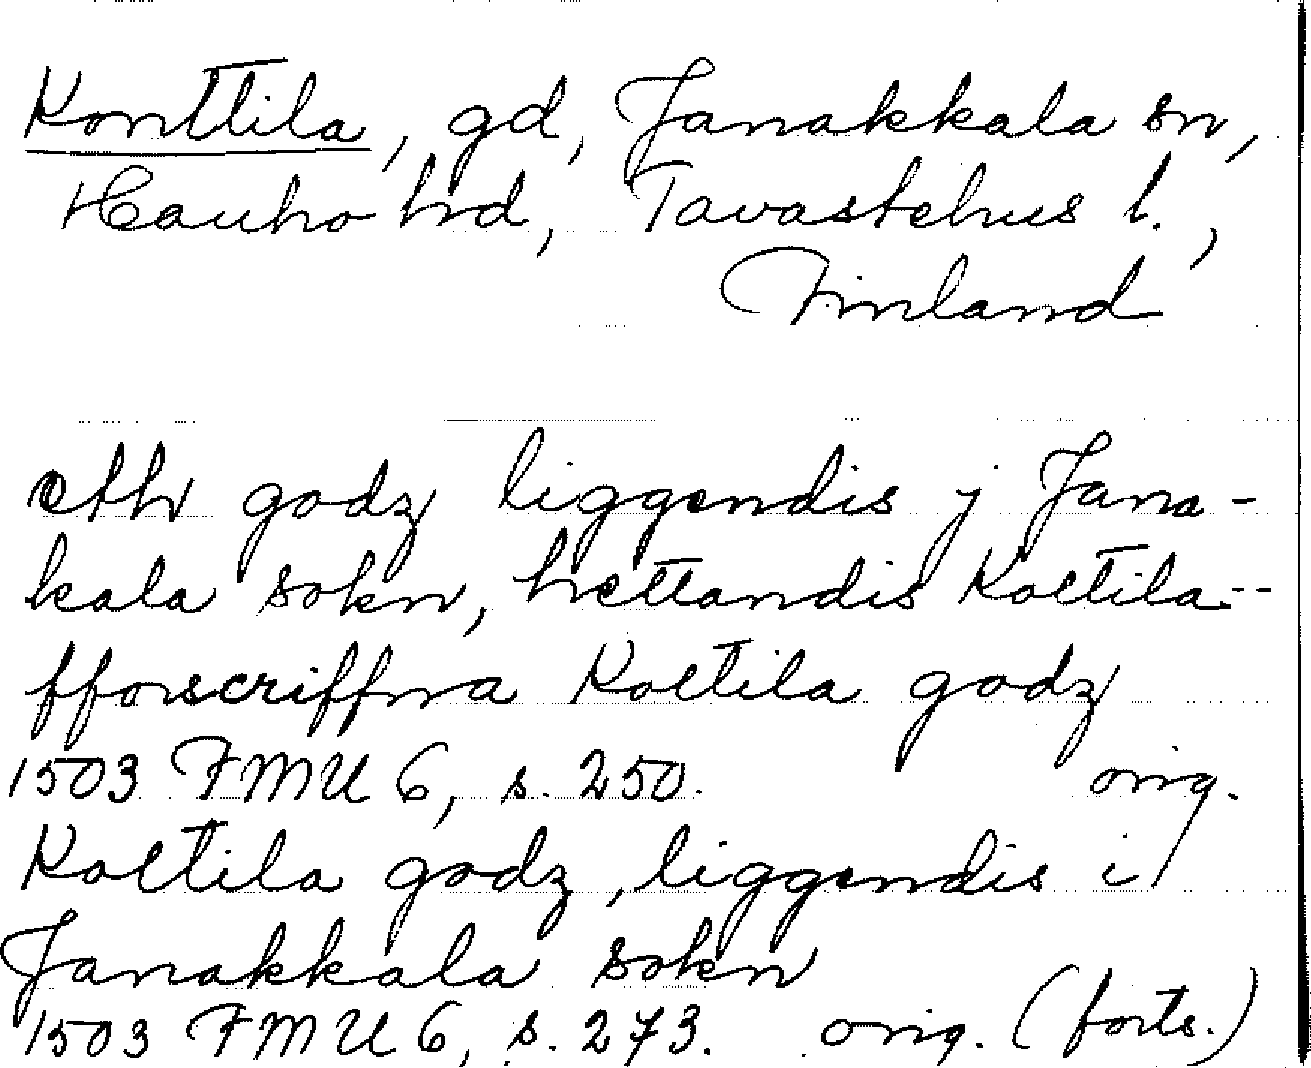 Konttila, gd, Janakkala sn,
Hauho hrd, Tavastehus l.,
Finland
eth godz liggendis j Jana-
kala sokn, hettandis Koltila--
fforscriffna Koltila godz
1503 FMU 6, s. 250. orig.
Koltila godz, liggendis i
Janakkala sokn
1503 FMU 6, s. 273. orig. (forts.)